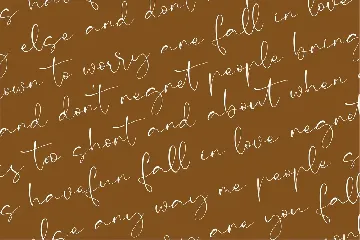 s and don't
y else and don't fall in love
own to worry are fall in love
and don't regret people bring
is too short and about when
s havefun fall in love regret
else any way me people s
are you fall